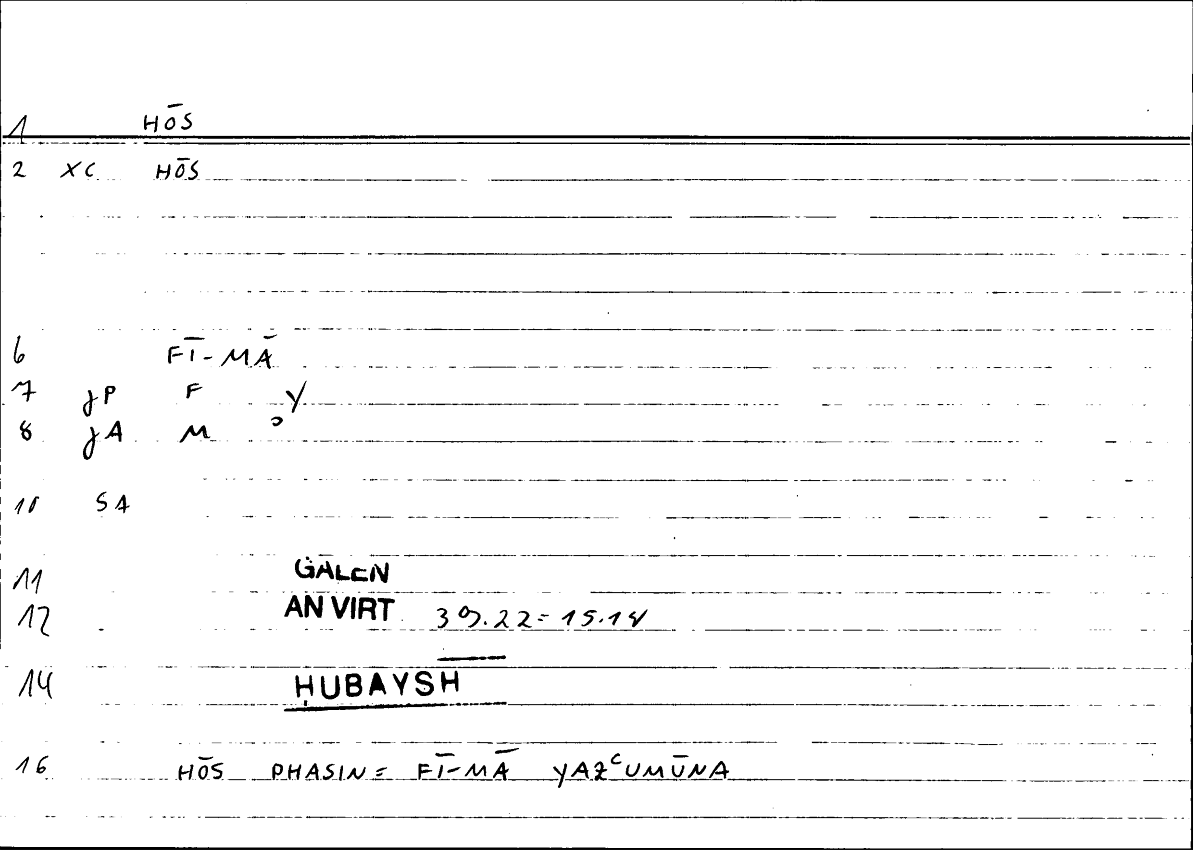 1 HŌS
2 XC HŌS
6 FĪ-MĀ
7 jP F Y
8 jA M °
10 SA
11 GALEN
12 AN VIRT 39.22= 15.14
14 ḤUBAYSH
16 HŌS PHASIN= FĪ-MĀ YAZᶜUMŪNA